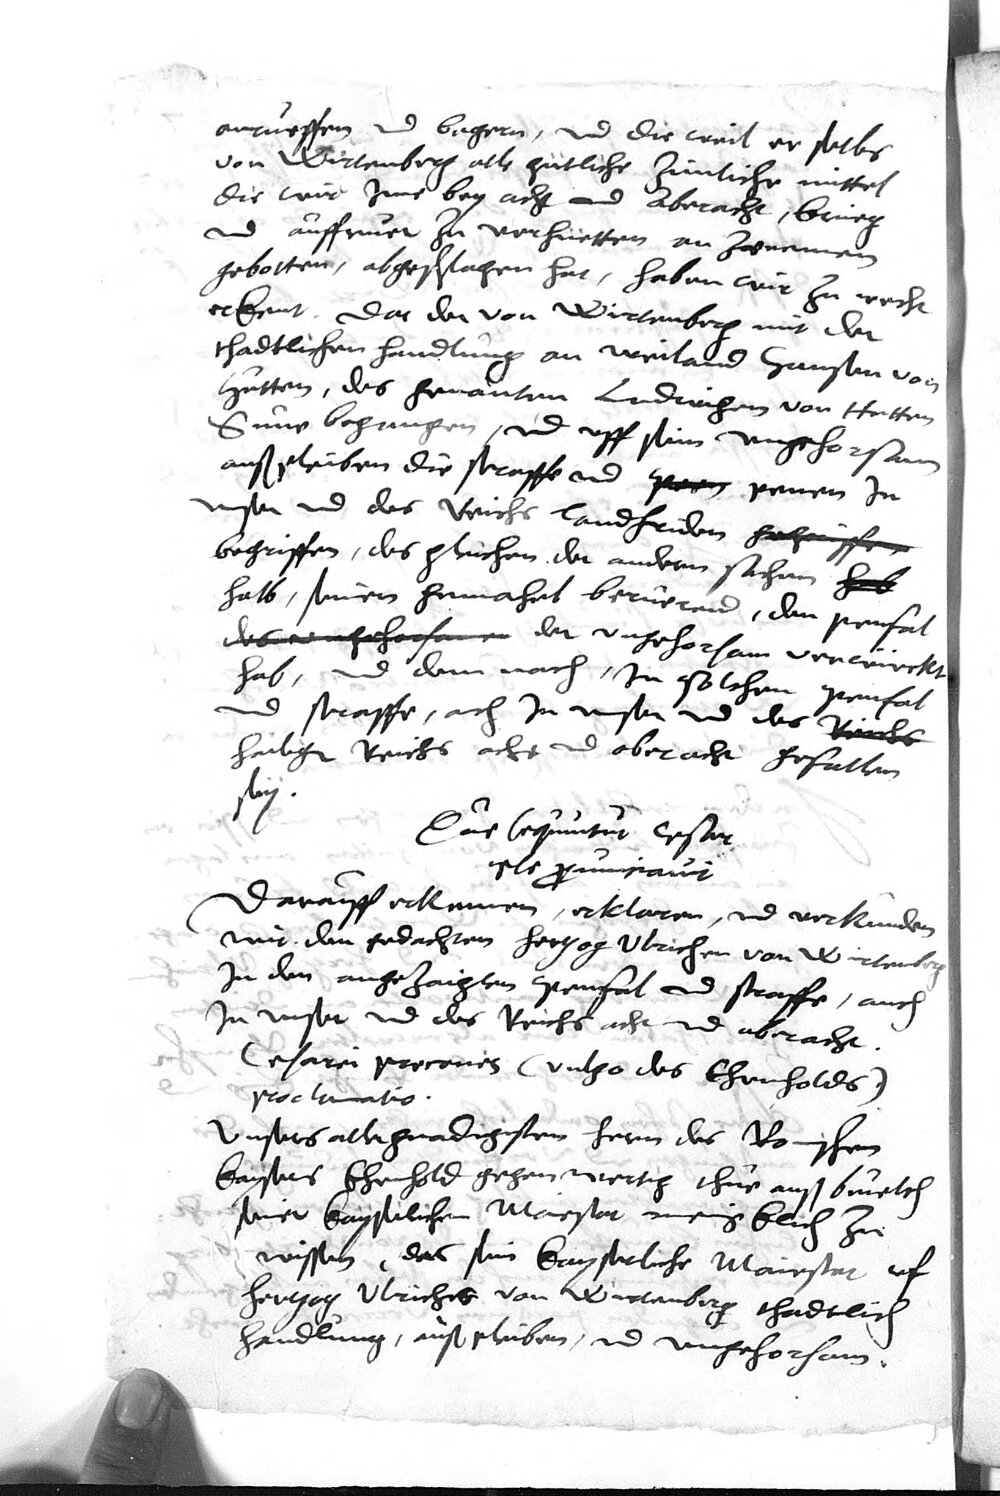 anrueffen und begern, und die weil er selbs
von Wirtenberg alle gutliche zimliche mittel
die wir Ime bey acht und Aberacht, krieg
und auffruer zu verhuetten an zunemen
gebotten, abgeschlagen hat, haben wir zu recht
erkent. Das der von Wirtenberg mit der
thadtlichen handlung an weiland Hansen von
Hutten, des genanten Ludwigen von Hutten
Sune begangen, und uff sein ungehorsam
aussbleiben die straffe und peen penen In
unser und des Reichs landfriden
begriffen, des gleichen der andern sachen hab
halb, seinen gemahel beruerend, den penfal
des ungehorsamen der ungehorsam verwirckt
hab, und dem nach, In solchen penfal
und straffe, ach In unser und des Reichs
heiligen Reichs acht und aberacht gefallen
sey.
Que sequuntur Cesar
ipse pronunciavit
Darauff erkennen, erklaren, und verkunden
wir den gedachten hertzog Ulrichen von Wirtenberg
In den angezaigten penfal und straffe, auch
In unser und des Reichs acht und aberacht.
Cesarei preconis (vulgo des Ehrnholds)
proclamatio.
Unsers allergnadigisten hern des Romischen
kaysers Ehrnhold gegenwertig thue auss bevelch
seiner kayserlichen Maiestat menigklich zu
wissen, das sein kayserliche Maiestat uf
hertzog Ulrichs von Wirtenberg thadtlich
handlung, aussbleiben, und ungehorsam.